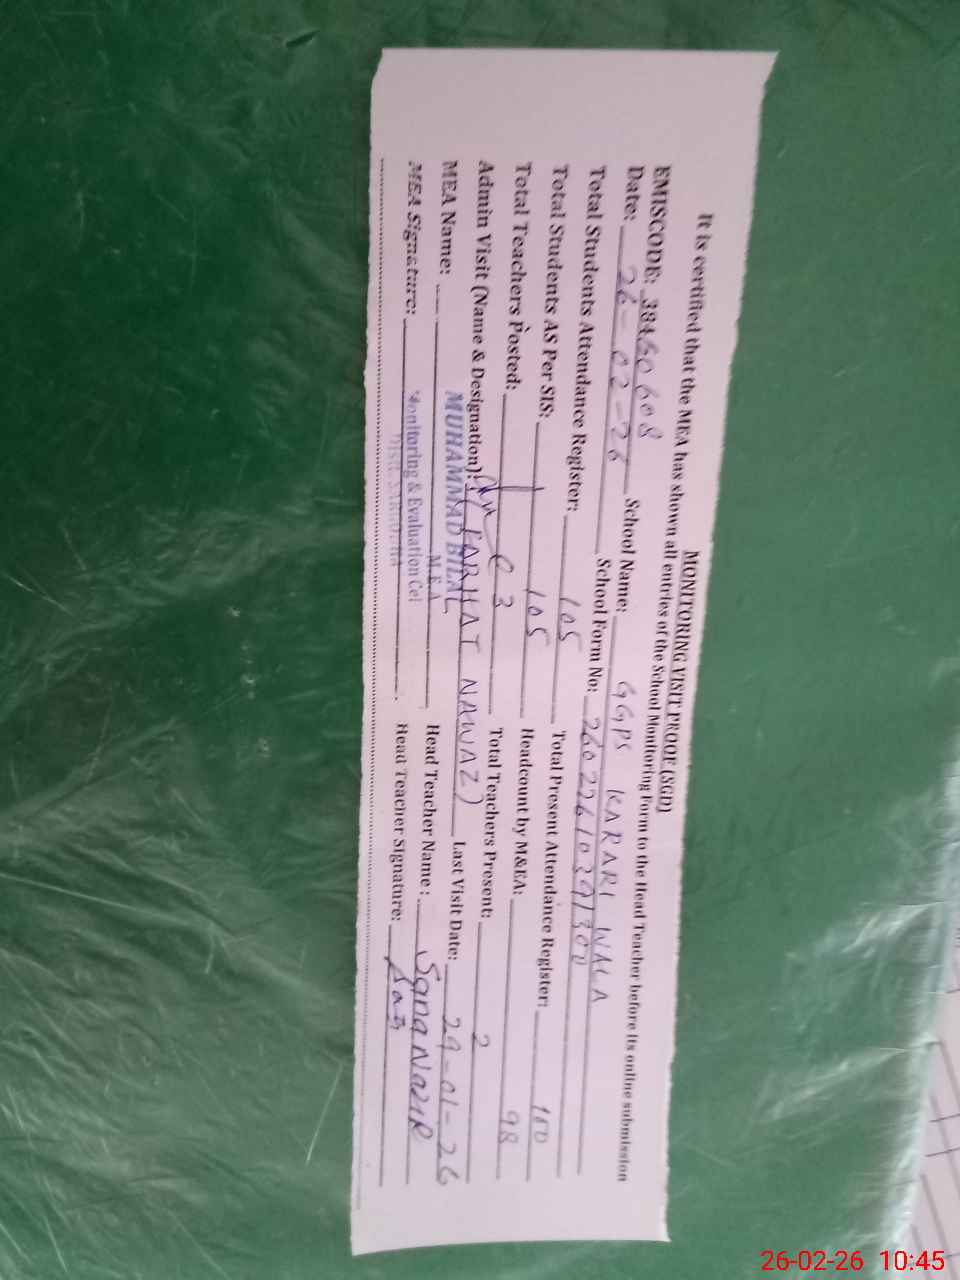 MONITORING VISIT PROOF (SGD)
It is certified that the MEA has shown all entries of the School Monitoring Form to the Head Teacher before its online submission
EMISCODE: 38460608 School Name: GGPS KARARI WALA
Date: 26-02-26 School Form No: 26022610291300
Total Students Attendance Register: 105 Total Present Attendance Register: 100
Total Students AS Per SIS: 105 Headcount by M&EA: 98
Total Teachers Posted: 03 Total Teachers Present: 2
Admin Visit (Name & Designation): (FARHAT NAWAZ) Last Visit Date: 29-01-26
MEA Name: MUHAMMAD BILAL Head Teacher Name: Sana Nazir
M.E.A
MEA Signature: Monitoring & Evaluation Cel Head Teacher Signature:
Distt. SARGODHA
26-02-26 10:45